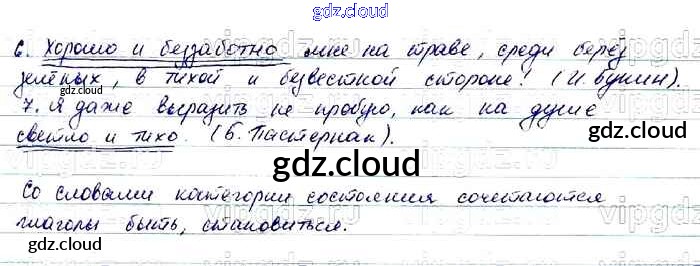 gdz.cloud
6. Хорошо и беззаботно мне на траве, среди берёз
зелёных, в тихой и безвестной стороне! (И. Бунин).
gdz.cloud
7. Я даже выразить не пробую, как на душе
gdz.cloud
светло и тихо. (Б. Пастернак).
gdz.cloud
Со словами категории состояния сочетаются
глаголы быть, становиться.
gdz.cloud